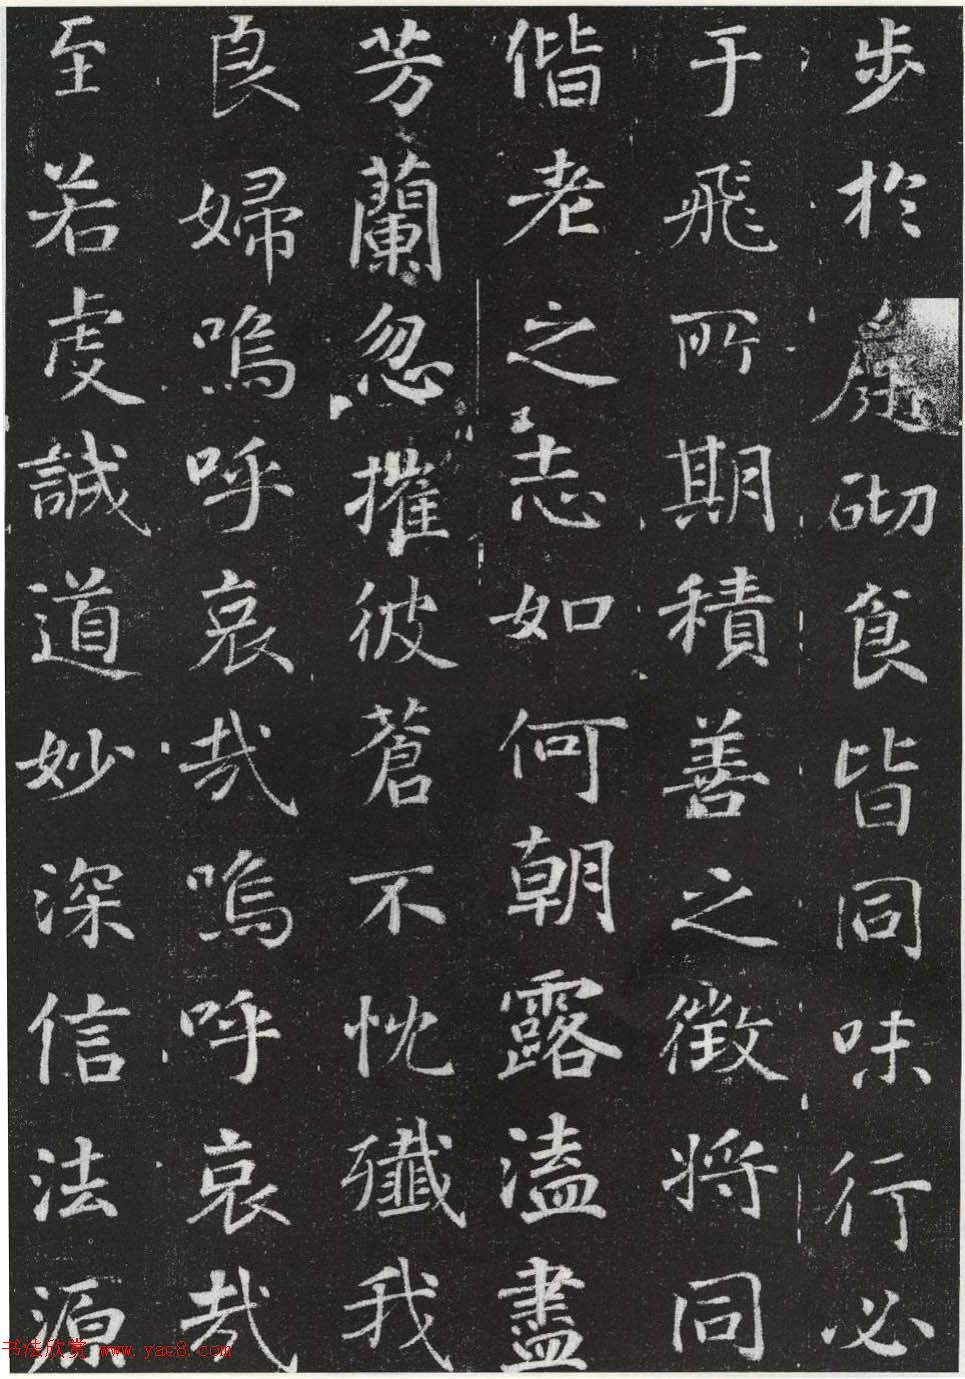 步於庭砌食皆同味行必
于飛所期積善之徵將同
偕老之志如何朝露溘盡
芳蘭忽摧彼蒼不忱殲我
良婦嗚呼哀哉嗚呼哀哉
至若虔誠道妙深信法源
书法欣赏 www.yac8.com